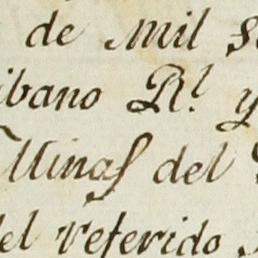 de mil s
ibano Rl. y
Minas del
del referido